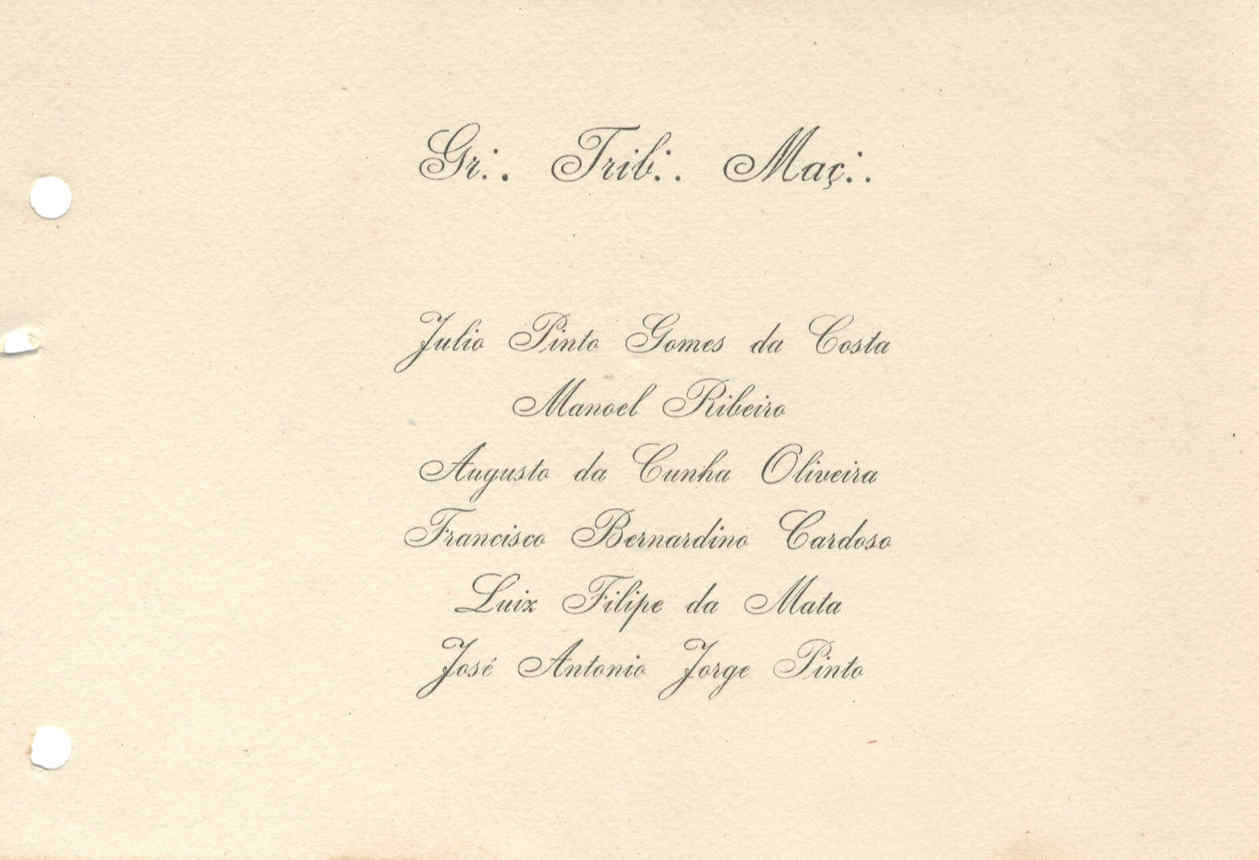 Gr∴ Trib∴ Maç∴
Julio Pinto Gomes da Costa
Manoel Ribeiro
Augusto da Cunha Oliveira
Francisco Bernardino Cardoso
Luiz Filipe da Mata
José Antonio Jorge Pinto